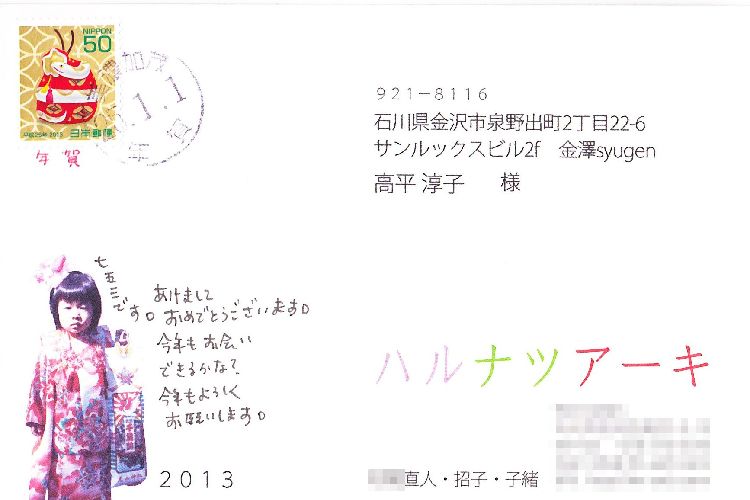 NIPPON
50
平成25年 2013
日本郵便
年賀
加茂
1.1
年賀
921-8116
石川県金沢市泉野出町2丁目22-6
サンルックスビル2f 金澤syugen
高平 淳子 様
七五三です。
あけまして
おめでとうございます。
今年もお会い
できるかな?
今年もよろしく
お願いします。
ハルナツアーキ
2013
直人・招子・子緒